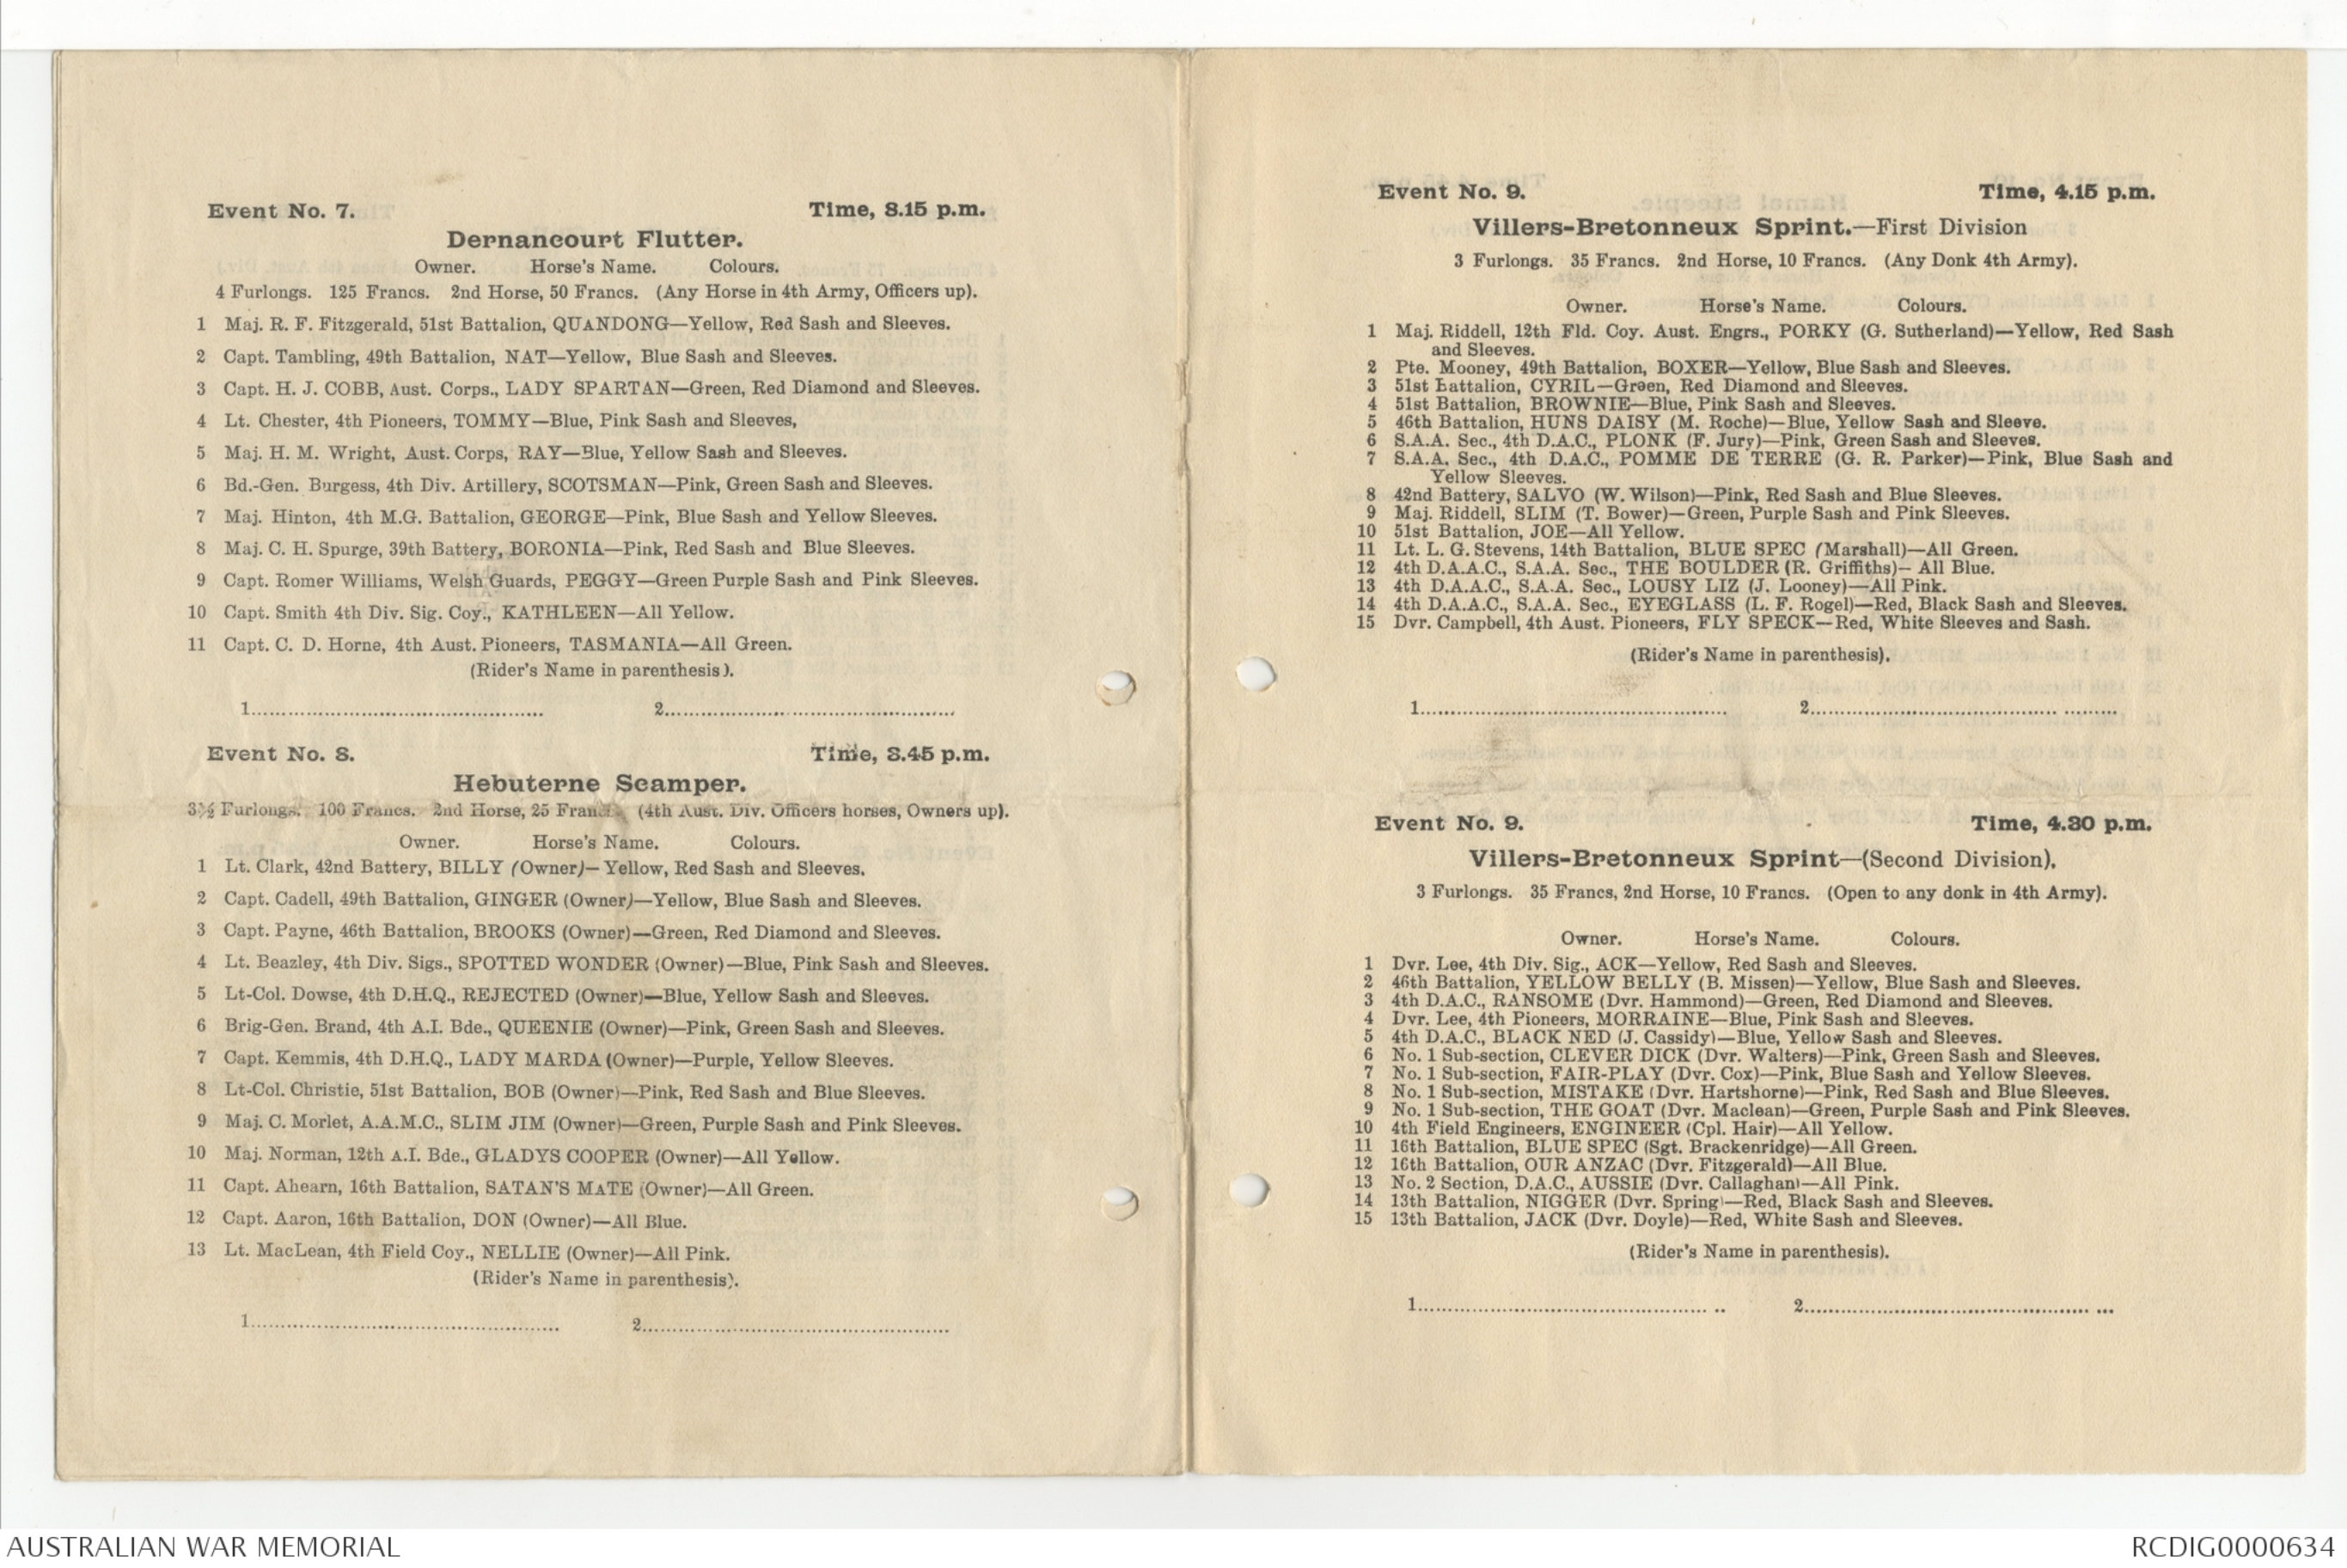 Event No. 7. Time, 3.15 p.m.
Dernancourt Flutter.
Owner. Horse's Name. Colours.
4 Furlongs. 125 Francs. 2nd Horse, 50 Francs. (Any Horse in 4th Army, Officers up).
1 Maj. R. F. Fitzgerald, 51st Battalion, QUANDONG—Yellow, Red Sash and Sleeves.
2 Capt. Tambling, 49th Battalion, NAT—Yellow, Blue Sash and Sleeves.
3 Capt. H. J. COBB, Aust. Corps., LADY SPARTAN—Green, Red Diamond and Sleeves.
4 Lt. Chester, 4th Pioneers, TOMMY—Blue, Pink Sash and Sleeves,
5 Maj. H. M. Wright, Aust. Corps, RAY—Blue, Yellow Sash and Sleeves.
6 Bd.-Gen. Burgess, 4th Div. Artillery, SCOTSMAN—Pink, Green Sash and Sleeves.
7 Maj. Hinton, 4th M.G. Battalion, GEORGE—Pink, Blue Sash and Yellow Sleeves.
8 Maj. C. H. Spurge, 39th Battery, BORONIA—Pink, Red Sash and Blue Sleeves.
9 Capt. Romer Williams, Welsh Guards, PEGGY—Green Purple Sash and Pink Sleeves.
10 Capt. Smith 4th Div. Sig. Coy., KATHLEEN—All Yellow.
11 Capt. C. D. Horne, 4th Aust. Pioneers, TASMANIA—All Green.
(Rider's Name in parenthesis).
1............................................. 2.............................................
Event No. 8. Time, 3.45 p.m.
Hebuterne Scamper.
3½ Furlongs. 100 Francs. 2nd Horse, 25 Francs. (4th Aust. Div. Officers horses, Owners up).
Owner. Horse's Name. Colours.
1 Lt. Clark, 42nd Battery, BILLY (Owner)—Yellow, Red Sash and Sleeves.
2 Capt. Cadell, 49th Battalion, GINGER (Owner)—Yellow, Blue Sash and Sleeves.
3 Capt. Payne, 46th Battalion, BROOKS (Owner)—Green, Red Diamond and Sleeves.
4 Lt. Beazley, 4th Div. Sigs., SPOTTED WONDER (Owner)—Blue, Pink Sash and Sleeves.
5 Lt-Col. Dowse, 4th D.H.Q., REJECTED (Owner)—Blue, Yellow Sash and Sleeves.
6 Brig-Gen. Brand, 4th A.I. Bde., QUEENIE (Owner)—Pink, Green Sash and Sleeves.
7 Capt. Kemmis, 4th D.H.Q., LADY MARDA (Owner)—Purple, Yellow Sleeves.
8 Lt-Col. Christie, 51st Battalion, BOB (Owner)—Pink, Red Sash and Blue Sleeves.
9 Maj. C. Morlet, A.A.M.C., SLIM JIM (Owner)—Green, Purple Sash and Pink Sleeves.
10 Maj. Norman, 12th A.I. Bde., GLADYS COOPER (Owner)—All Yellow.
11 Capt. Ahearn, 16th Battalion, SATAN'S MATE (Owner)—All Green.
12 Capt. Aaron, 16th Battalion, DON (Owner)—All Blue.
13 Lt. MacLean, 4th Field Coy., NELLIE (Owner)—All Pink.
(Rider's Name in parenthesis).
1............................................. 2.............................................
Event No. 9. Time, 4.15 p.m.
Villers-Bretonneux Sprint.—First Division
3 Furlongs. 35 Francs. 2nd Horse, 10 Francs. (Any Donk 4th Army).
Owner. Horse's Name. Colours.
1 Maj. Riddell, 12th Fld. Coy. Aust. Engrs., PORKY (G. Sutherland)—Yellow, Red Sash
and Sleeves.
2 Pte. Mooney, 49th Battalion, BOXER—Yellow, Blue Sash and Sleeves.
3 51st Battalion, CYRIL—Green, Red Diamond and Sleeves.
4 51st Battalion, BROWNIE—Blue, Pink Sash and Sleeves.
5 46th Battalion, HUNS DAISY (M. Roche)—Blue, Yellow Sash and Sleeve.
6 S.A.A. Sec., 4th D.A.C., PLONK (F. Jury)—Pink, Green Sash and Sleeves.
7 S.A.A. Sec., 4th D.A.C., POMME DE TERRE (G. R. Parker)—Pink, Blue Sash and
Yellow Sleeves.
8 42nd Battery, SALVO (W. Wilson)—Pink, Red Sash and Blue Sleeves.
9 Maj. Riddell, SLIM (T. Bower)—Green, Purple Sash and Pink Sleeves.
10 51st Battalion, JOE—All Yellow.
11 Lt. L. G. Stevens, 14th Battalion, BLUE SPEC (Marshall)—All Green.
12 4th D.A.A.C., S.A.A. Sec., THE BOULDER (R. Griffiths)— All Blue.
13 4th D.A.A.C., S.A.A. Sec., LOUSY LIZ (J. Looney)—All Pink.
14 4th D.A.A.C., S.A.A. Sec., EYEGLASS (L. F. Rogel)—Red, Black Sash and Sleeves.
15 Dvr. Campbell, 4th Aust. Pioneers, FLY SPECK—Red, White Sleeves and Sash.
(Rider's Name in parenthesis).
1............................................. 2.............................................
Event No. 9. Time, 4.30 p.m.
Villers-Bretonneux Sprint—(Second Division).
3 Furlongs. 35 Francs, 2nd Horse, 10 Francs. (Open to any donk in 4th Army).
Owner. Horse's Name. Colours.
1 Dvr. Lee, 4th Div. Sig., ACK—Yellow, Red Sash and Sleeves.
2 46th Battalion, YELLOW BELLY (B. Missen)—Yellow, Blue Sash and Sleeves.
3 4th D.A.C., RANSOME (Dvr. Hammond)—Green, Red Diamond and Sleeves.
4 Dvr. Lee, 4th Pioneers, MORRAINE—Blue, Pink Sash and Sleeves.
5 4th D.A.C., BLACK NED (J. Cassidy)—Blue, Yellow Sash and Sleeves.
6 No. 1 Sub-section, CLEVER DICK (Dvr. Walters)—Pink, Green Sash and Sleeves.
7 No. 1 Sub-section, FAIR-PLAY (Dvr. Cox)—Pink, Blue Sash and Yellow Sleeves.
8 No. 1 Sub-section, MISTAKE (Dvr. Hartshorne)—Pink, Red Sash and Blue Sleeves.
9 No. 1 Sub-section, THE GOAT (Dvr. Maclean)—Green, Purple Sash and Pink Sleeves.
10 4th Field Engineers, ENGINEER (Cpl. Hair)—All Yellow.
11 16th Battalion, BLUE SPEC (Sgt. Brackenridge)—All Green.
12 16th Battalion, OUR ANZAC (Dvr. Fitzgerald)—All Blue.
13 No. 2 Section, D.A.C., AUSSIE (Dvr. Callaghan)—All Pink.
14 13th Battalion, NIGGER (Dvr. Spring)—Red, Black Sash and Sleeves.
15 13th Battalion, JACK (Dvr. Doyle)—Red, White Sash and Sleeves.
(Rider's Name in parenthesis).
1............................................. 2.............................................
AUSTRALIAN WAR MEMORIAL RCDIG0000634